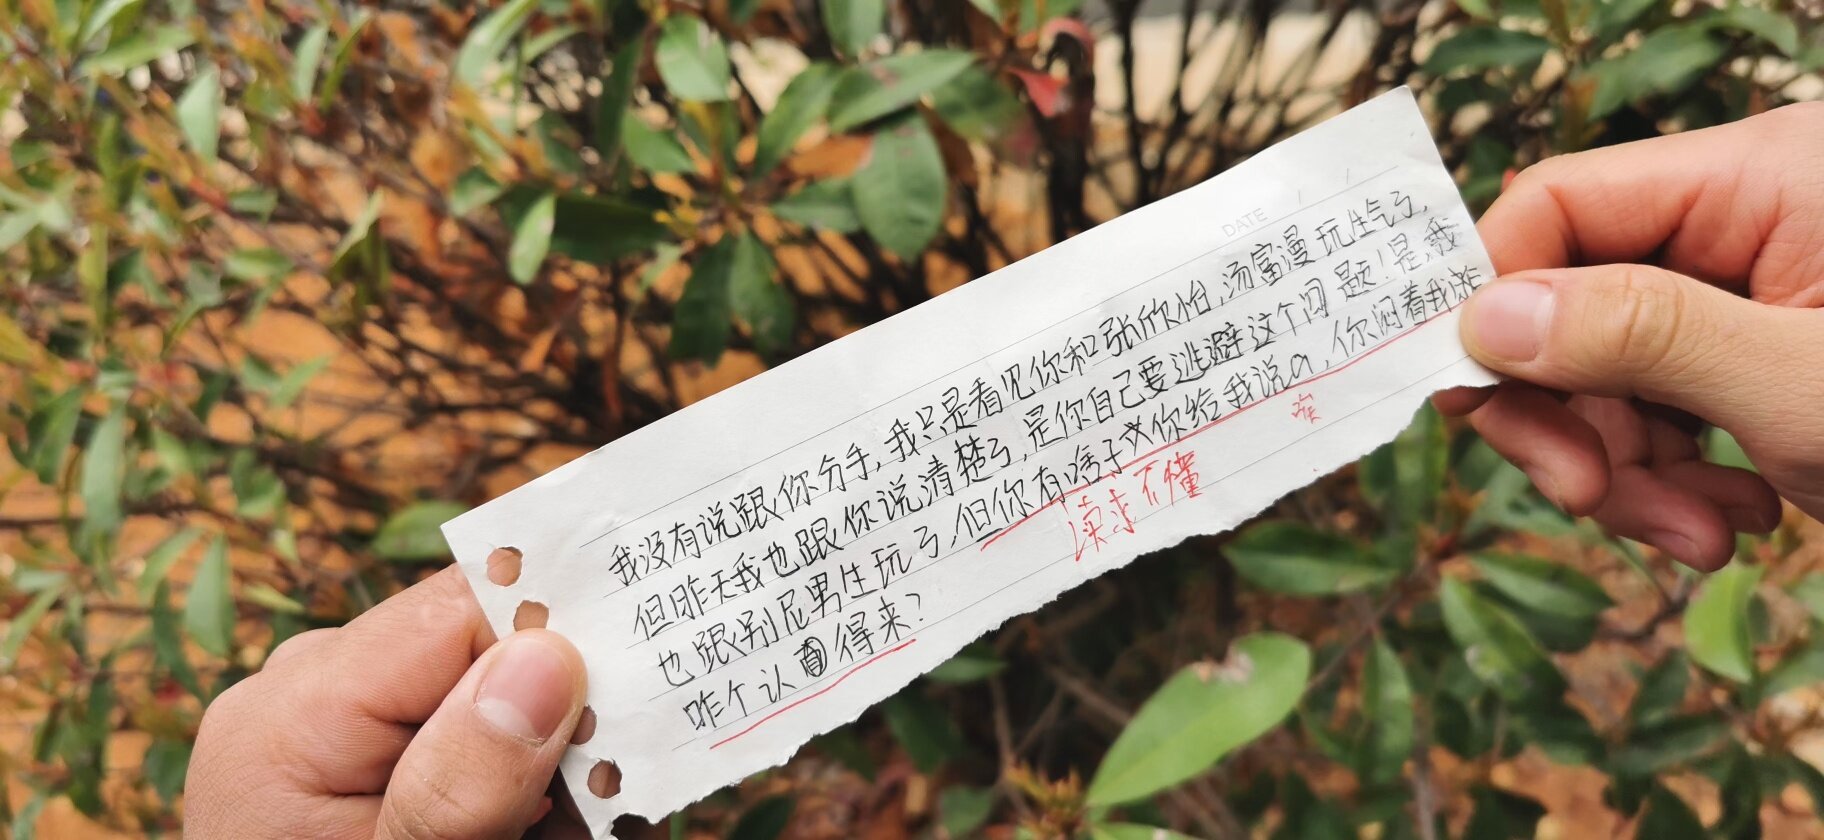 DATE / /
我没有说跟你分手,我只是看见你和张欣怡,汤富漫玩生气了,
但昨天我也跟你说清楚了,是你自己要逃避这个问题!是我
也跟别尼男生玩了,但你有啥子必你给我说a,你闷着我
读来不懂
咋个认得来?